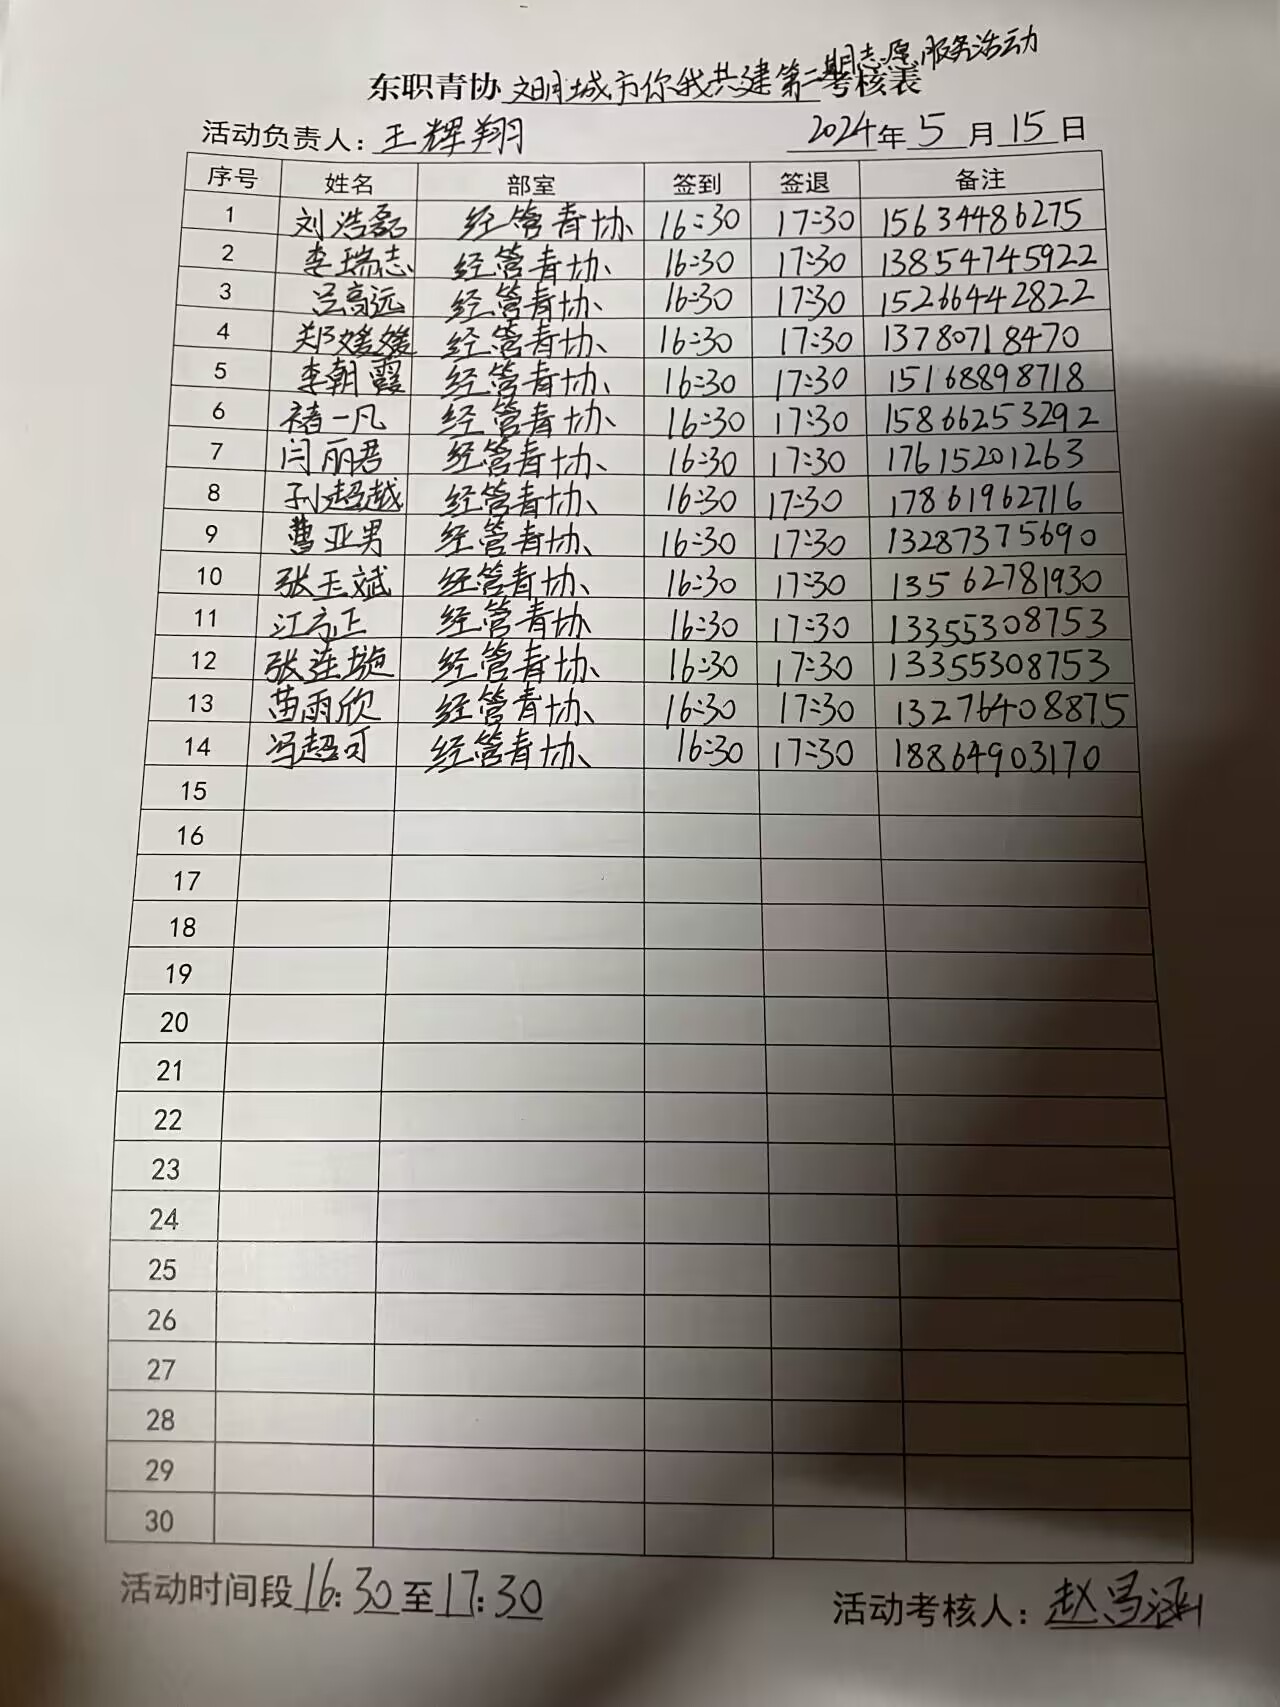 东职青协文明城市你我共建第二期志愿服务活动考核表
活动负责人：王辉翔 2024年5月15日
序号 姓名 部室 签到 签退 备注
1 刘浩磊 经管青协 16:30 17:30 15634486275
2 李瑞志 经管青协 16:30 17:30 13854745922
3 吕高远 经管青协 16:30 17:30 15266442822
4 郑媛媛 经管青协 16:30 17:30 13780718470
5 李朝霞 经管青协 16:30 17:30 15168898718
6 褚一凡 经管青协 16:30 17:30 15866253292
7 闫丽君 经管青协 16:30 17:30 17615201263
8 孙超越 经管青协 16:30 17:30 17861962716
9 曹亚男 经管青协 16:30 17:30 13287375690
10 张玉斌 经管青协 16:30 17:30 13562781930
11 江方正 经管青协 16:30 17:30 13355308753
12 张连璇 经管青协 16:30 17:30 13355308753
13 苗雨欣 经管青协 16:30 17:30 13276408875
14 冯超可 经管青协 16:30 17:30 18864903170
15
16
17
18
19
20
21
22
23
24
25
26
27
28
29
30
活动时间段16:30至17:30 活动考核人：赵昌涵